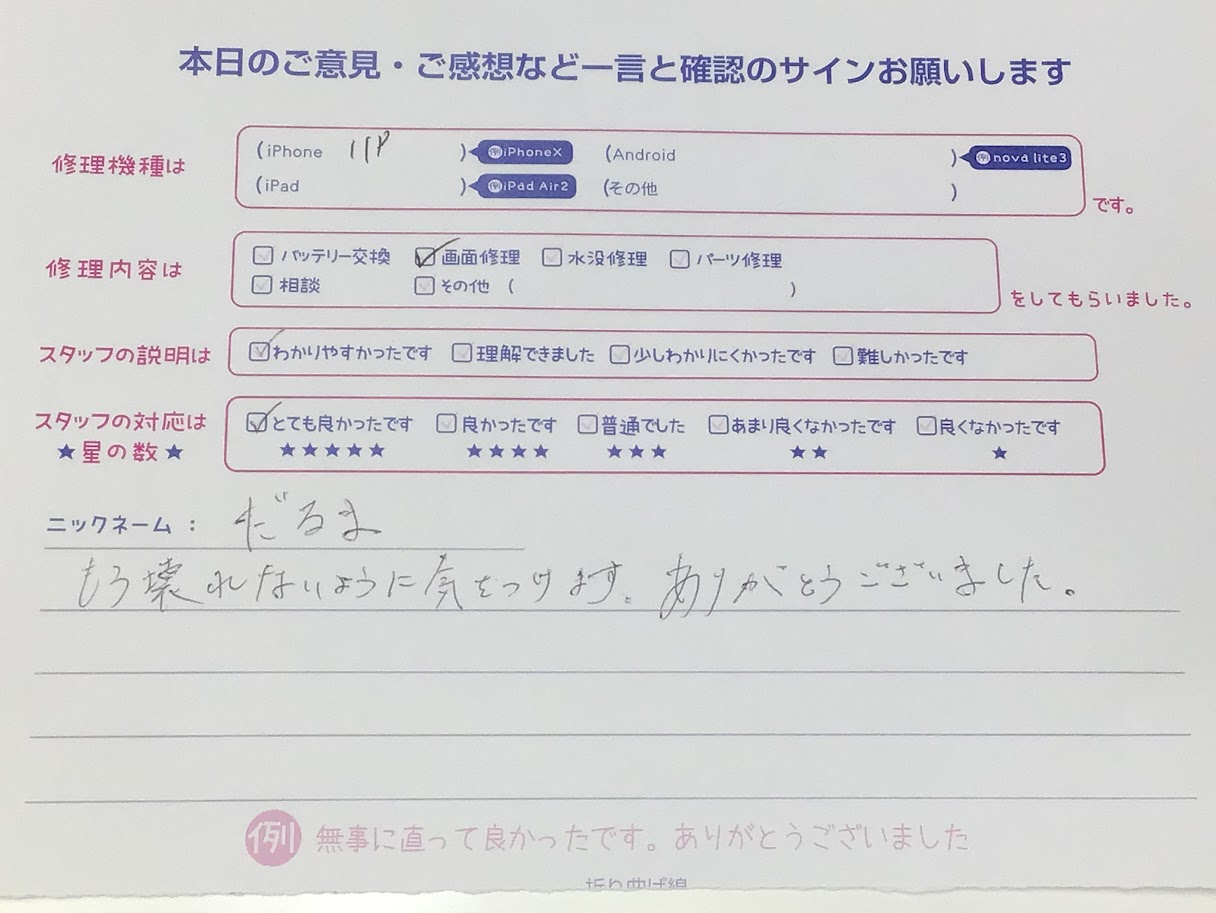 本日のご意見・ご感想など一言と確認のサインお願いします
修理機種は
(iPhone 11P ) 例iPhoneX (Android ) 例nova lite3
(iPad ) 例iPad Air2 (その他 )
です。
修理内容は
バッテリー交換 画面修理 水没修理 パーツ修理
相談 その他 ( )
をしてもらいました。
スタッフの説明は わかりやすかったです 理解できました 少しわかりにくかったです 難しかったです
スタッフの対応は とても良かったです 良かったです 普通でした あまり良くなかったです 良くなかったです
★星の数★ ★★★★★ ★★★★ ★★★ ★★ ★
ニックネーム： だるま
もう壊れないように気をつけます。ありがとうございました。
例 無事に直って良かったです。ありがとうございました
折り曲げ線